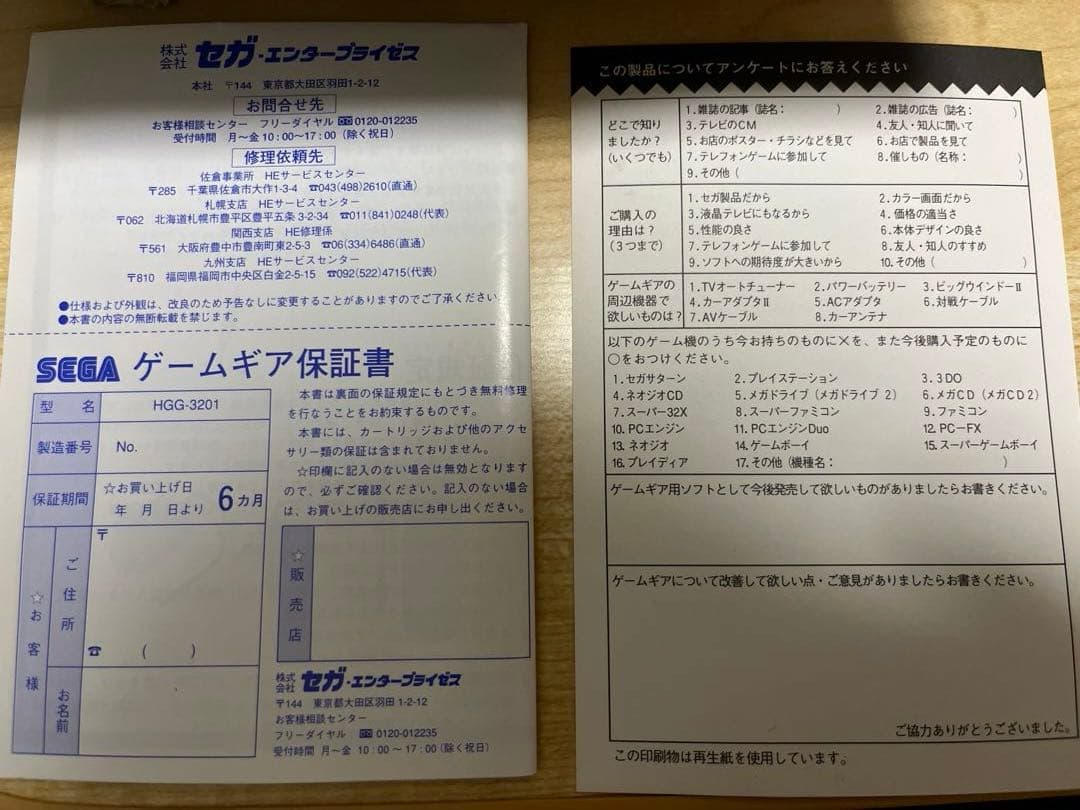 株式会社 セガ・エンタープライゼス
本社 〒144 東京都大田区羽田1-2-12
お問合せ先
お客様相談センター フリーダイヤル 0120-012235
受付時間 月〜金 10:00〜17:00(除く祝日)
修理依頼先
佐倉事業所 HEサービスセンター
〒285 千葉県佐倉市大作1-3-4 ☎043(498)2610(直通)
札幌支店 HEサービスセンター
〒062 北海道札幌市豊平区豊平五条 3-2-34 ☎011(841)0248(代表)
関西支店 HE修理係
〒561 大阪府豊中市豊南町東2-5-3 ☎06(334)6486(直通)
九州支店 HEサービスセンター
〒810 福岡県福岡市中央区白金2-5-15 ☎092(522)4715(代表)
●仕様および外観は、改良のため予告なしに変更することがありますのでご了承ください
●本書の内容の無断転載を禁じます。
SEGA ゲームギア保証書
型名 HGG-3201
製造番号 No.
保証期間 ☆お買い上げ日
年 月 日より 6カ月
☆お客様
ご住所
〒
☎ ( )
お名前
本書は裏面の保証規定にもとづき無料修理
を行なうことをお約束するものです。
本書には、カートリッジおよび他のアクセ
サリー類の保証は含まれておりません。
☆印欄に記入のない場合は無効となります
ので、必ずご確認ください。記入のない場合
は、お買い上げの販売店にお申し出ください。
☆販売店
株式会社 セガ・エンタープライゼス
〒144 東京都大田区羽田 1-2-12
お客様相談センター
フリーダイヤル 0120-012235
受付時間 月〜金 10:00〜17:00(除く祝日)
この製品についてアンケートにお答えください
どこで知り
ましたか?
(いくつでも)
1.雑誌の記事(誌名: ) 2.雑誌の広告(誌名: )
3.テレビのCM 4.友人・知人に聞いて
5.お店のポスター・チラシなどを見て 6.お店で製品を見て
7.テレフォンゲームに参加して 8.催しもの(名称: )
9.その他( )
ご購入の
理由は?
(3つまで)
1.セガ製品だから 2.カラー画面だから
3.液晶テレビにもなるから 4.価格の適当さ
5.性能の良さ 6.本体デザインの良さ
7.テレフォンゲームに参加して 8.友人・知人のすすめ
9.ソフトへの期待度が大きいから 10.その他( )
ゲームギアの
周辺機器で
欲しいものは?
1.TVオートチューナー 2.パワーバッテリー 3.ビッグウインドーⅡ
4.カーアダプタⅡ 5.ACアダプタ 6.対戦ケーブル
7.AVケーブル 8.カーアンテナ
以下のゲーム機のうち今お持ちのものに×を、また今後購入予定のものに
○をおつけください。
1.セガサターン 2.プレイステーション 3.3DO
4.ネオジオCD 5.メガドライブ(メガドライブ 2) 6.メガCD(メガCD2)
7.スーパー32X 8.スーパーファミコン 9.ファミコン
10.PCエンジン 11.PCエンジンDuo 12.PC-FX
13.ネオジオ 14.ゲームボーイ 15.スーパーゲームボーイ
16.プレイディア 17.その他(機種名: )
ゲームギア用ソフトとして今後発売して欲しいものがありましたらお書きください。
ゲームギアについて改善して欲しい点・ご意見がありましたらお書きください。
ご協力ありがとうございました。
この印刷物は再生紙を使用しています。